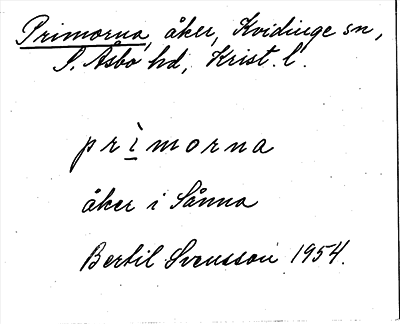 Primorna, åker, Kvidinge sn,
S. Åsbo hd, Krist. l.
prìmorna
åker i Sånna
Bertil Svensson 1954.